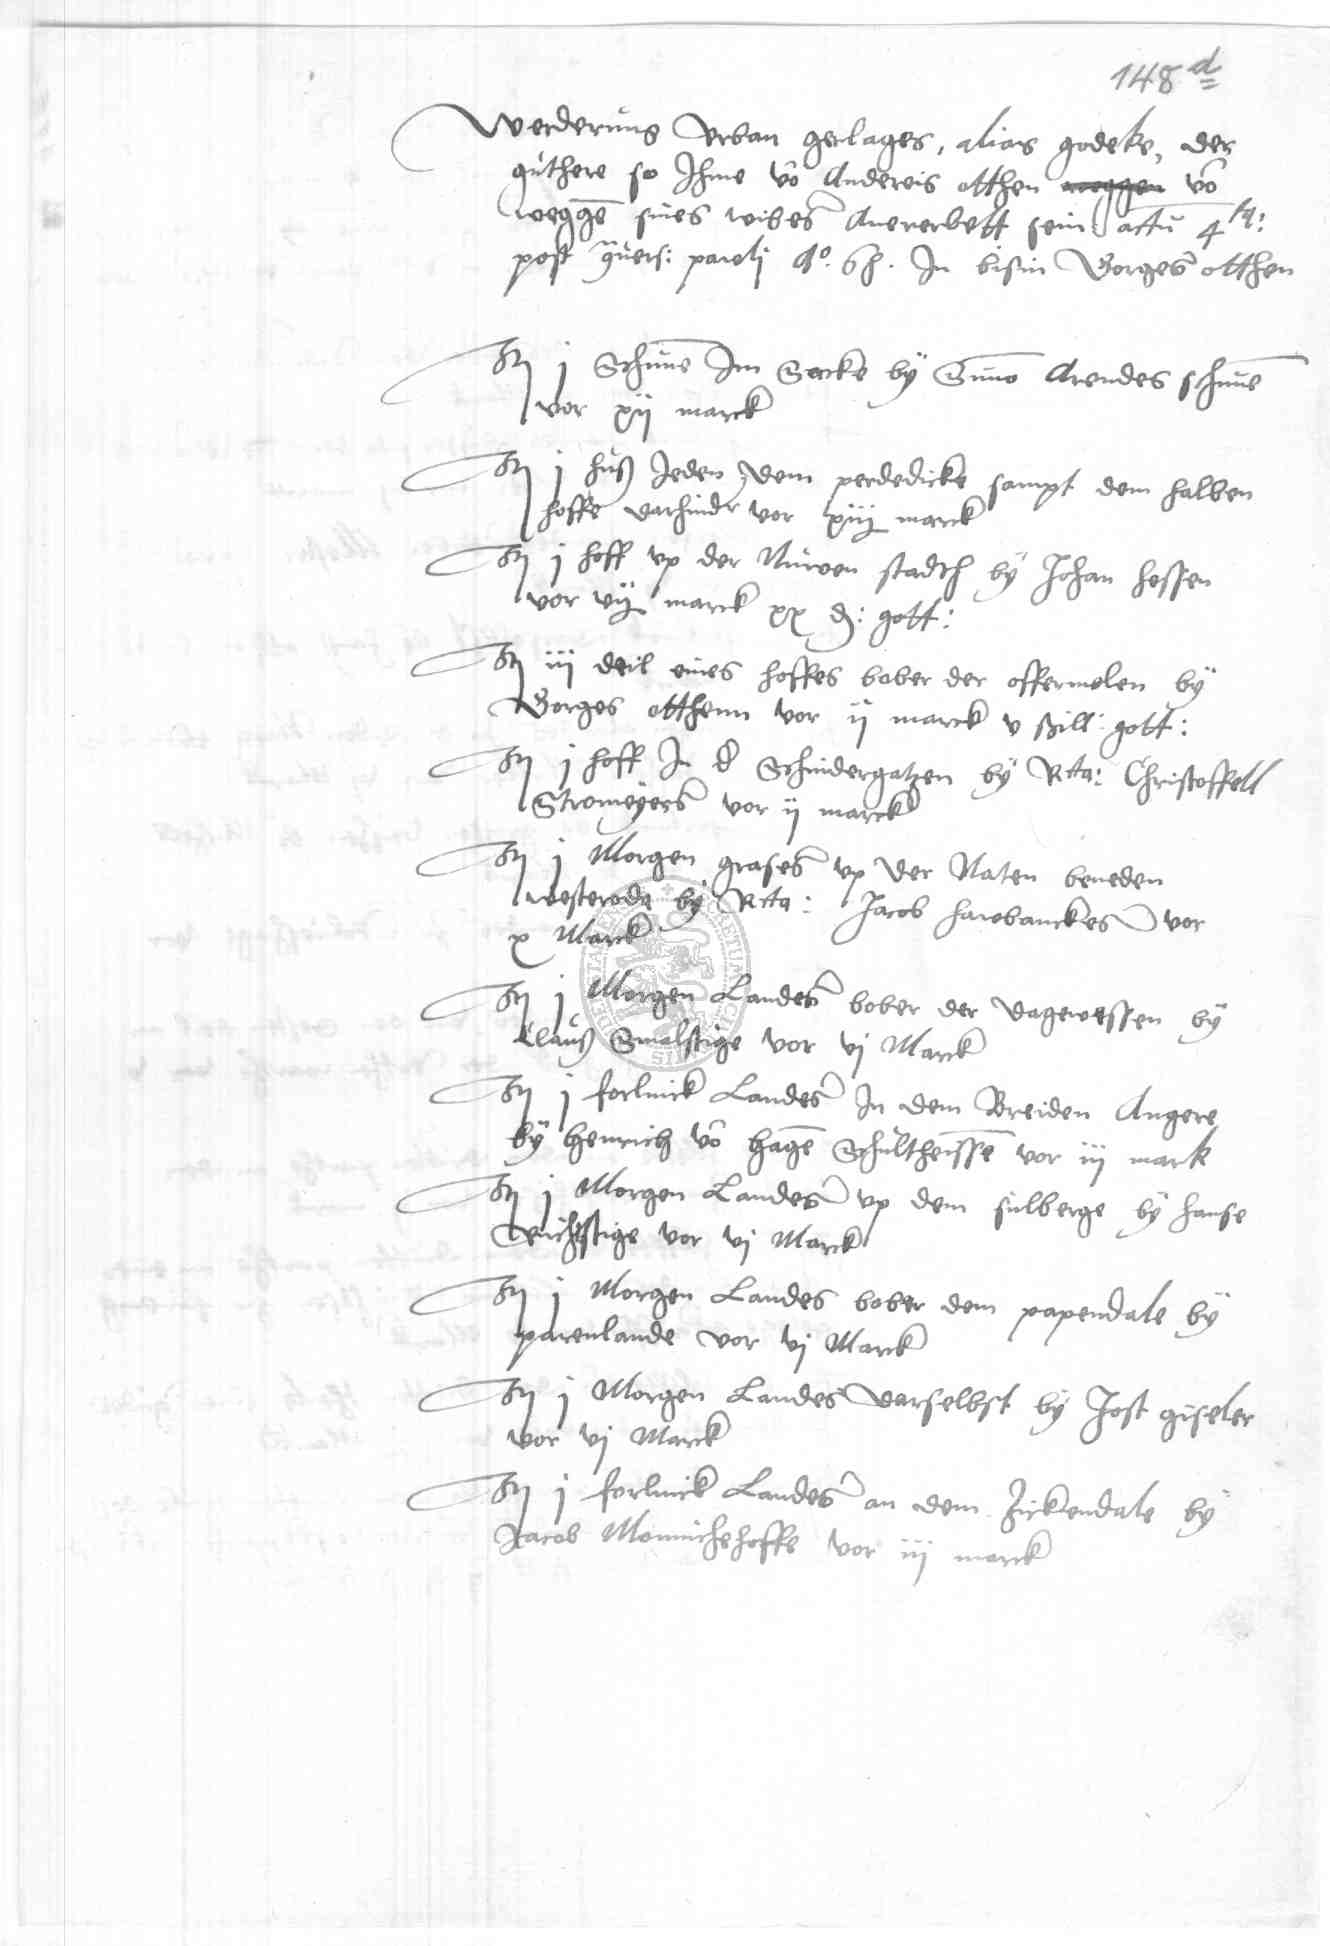 148 d
Werderung Urban gerlages, alias godeke, der
guthere so Ihme vo Andereis otthen vo
wegge sines wibes Anererbett sein actu 4
post pauli Ao. In Borges otthen
Itz j Schune Im Sacke by Arendes schune
vor xij marck
Itz j huß Ieden dem perdedicke sampt dem halben
hoffe darhinder vor xiij marck
Itz j hoff vp der Nuwen stadth by Johan hessen
vor vij marck xx d: gott:
Itz iij deil eines hoffes bober der offermolen by
Borges otthenn vor ij marck v ßill: gott:
Itz j hoff In der Schindergatzen by Rcta: Christoffell
Stromeyers vor ij marck
Itz j Morgen grases vp der Naten beneden
westerode by Rcta: Jacob harebanckes vor
x Marck
Itz j Morgen Landes bober der dagewessen by
Clauß Smalstige vor vj Marck
Itz j forlinck Landes In dem Breiden Angere
by Henrich vo Hage Schultheisse vor iij mark
Itz j Morgen Landes vp dem sulberge by hanse
vor vj Marck
Itz j Morgen Landes bober dem papendale by
parenlande vor vj Marck
Itz j Morgen Landes darselbst by Jost giseler
vor vj Marck
Itz j forlinck Landes an dem Zickendale by
Jacob Monnichehoffe vor iij marck